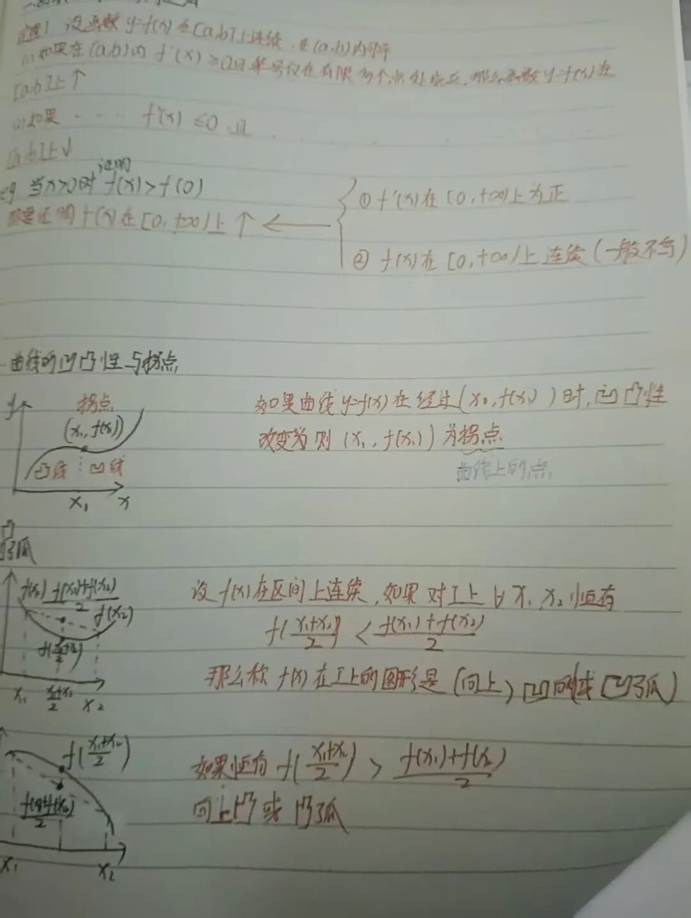 定理1 设函数 y=f(x) 在[a,b]上连续,在(a,b)内可导
(1) 如果在(a,b)内 f'(x) ≥0且等号仅在有限多个点处成立,那么函数y=f(x)在
[a,b]上↑
(2) 如果 · · · · · f'(x) ≤0 且
[a,b]上↓
eg 当x>0时 证明 f(x)>f(0)
f(x)在[0,+∞)上↑
① f'(x)在(0,+∞)上为正
② f(x)在[0,+∞)上连续(一般不写)
曲线的凹凸性与拐点
y 拐点
(x₁,f(x₁))
凸线 凹线
x₁ x
如果曲线y=f(x)在经过(x₁,f(x₁))时,凹凸性
改变为则(x₁,f(x₁))为拐点.
曲线上的点
凹弧
f(x₁) f(x₁)+f(x₂)/2 f(x₂)
f(x₁+x₂/2)
x₁ x₁+x₂/2 x₂
设f(x)在区间上连续,如果对I上∀x₁,x₂恒有
f(x₁+x₂/2) < f(x₁)+f(x₂)/2
那么称f(x)在I上的图形是(向上)凹的或凹弧)
f(x₁+x₂/2)
f(x₁)+f(x₂)/2
x₁ x₂
如果恒有f(x₁+x₂/2) > f(x₁)+f(x₂)/2
向上凸或凸弧